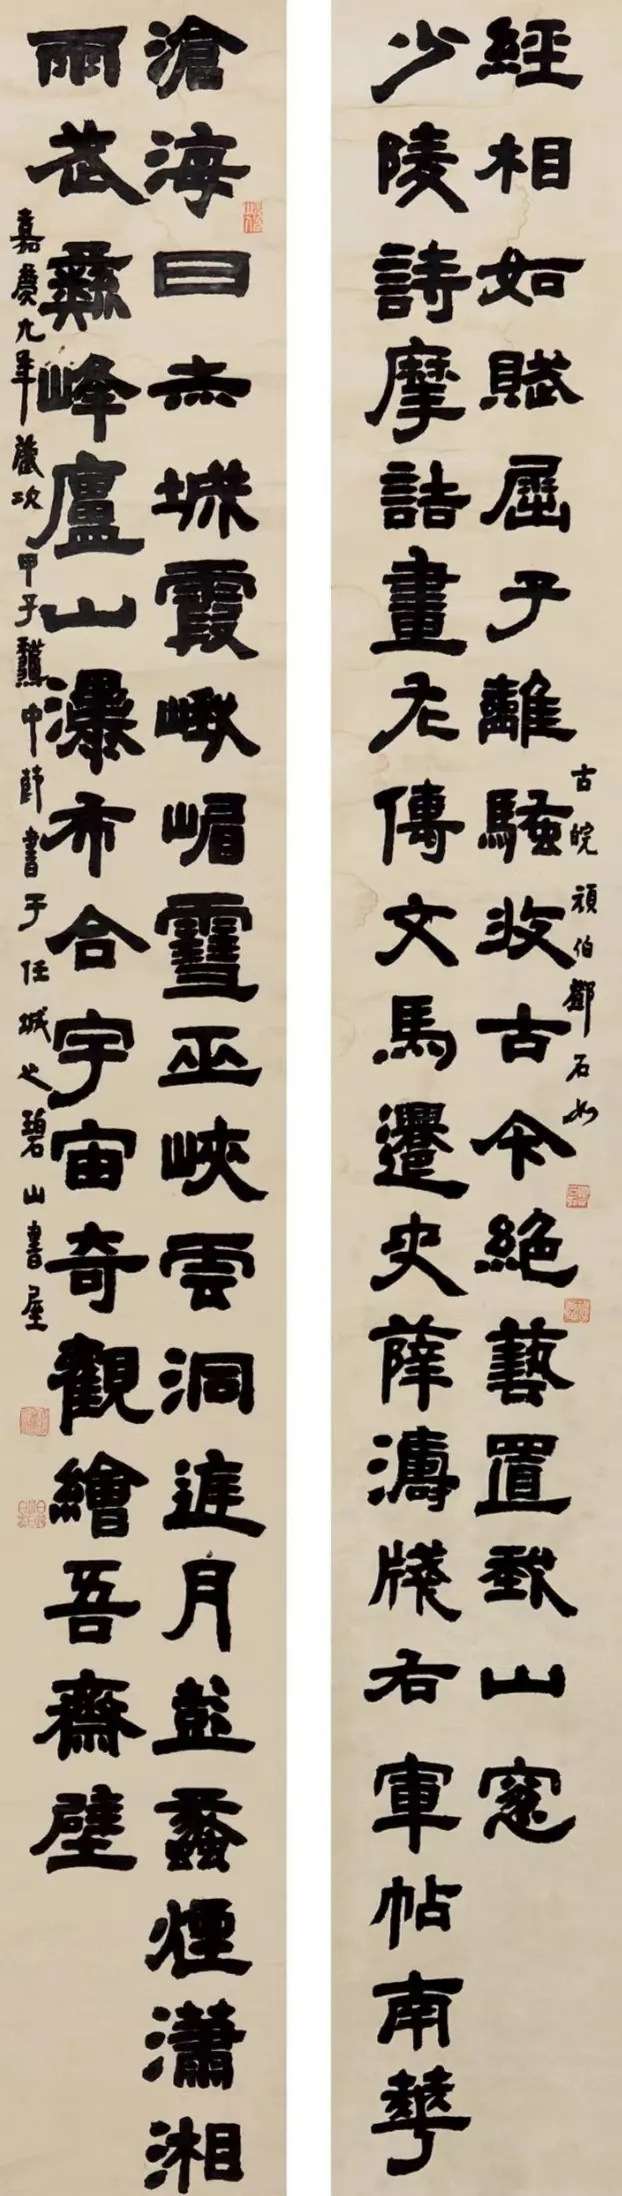 滄海日赤城霞峨嵋雪巫峽雲洞庭月彭蠡煙瀟湘
雨武彝峰廬山瀑布合宇宙奇觀繪吾齋壁
嘉慶九年歲次甲子中節書于任城之碧山書屋
少陵詩摩詰畫左傳文馬遷史薛濤牋右軍帖南華
經相如賦屈子離騷收古今絕藝置我山窗
古皖頑伯鄧石如